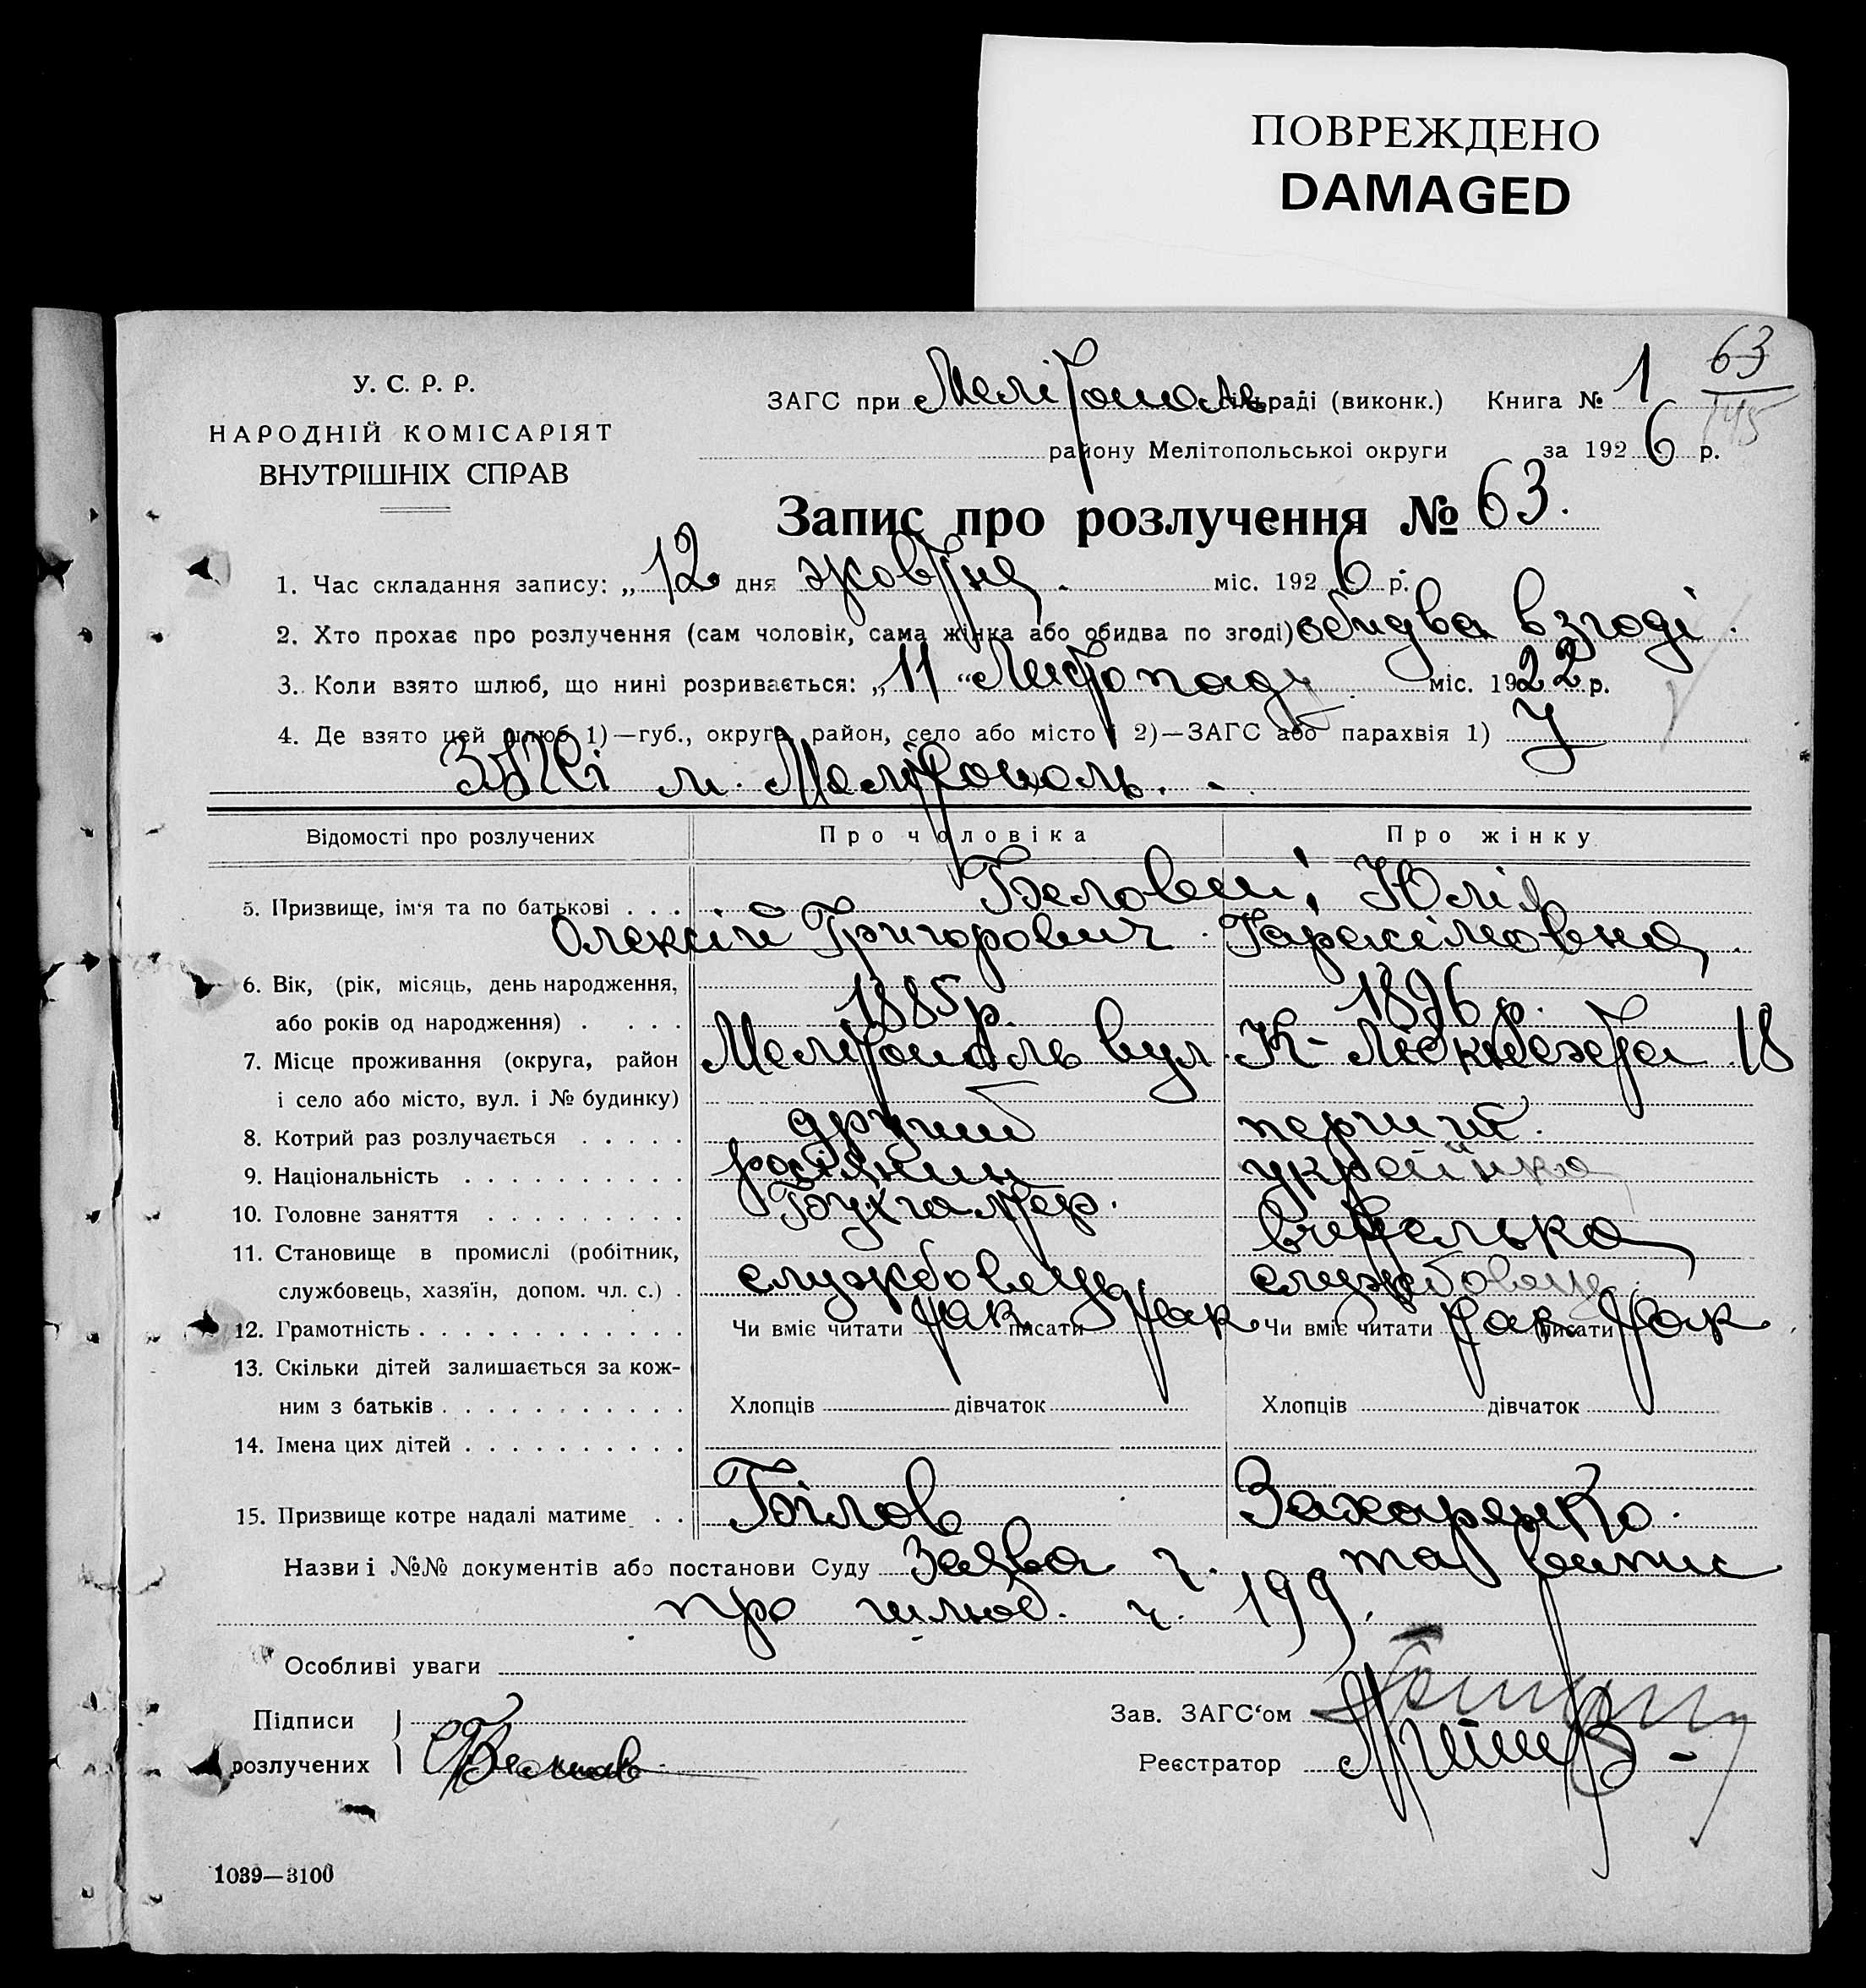 ПОВРЕЖДЕНО
DAMAGED
63
145
У. С. Р. Р.
НАРОДНІЙ КОМІСАРІЯТ
ВНУТРІШНІХ СПРАВ
ЗАГС при Мелітополь сільраді (виконк.) Книга № 1
району Мелітопольськоі округи за 1926 р.
Запис про розлучення № 63.
1. Час складання запису: „12 дня жовтня міс. 1926 р.
2. Хто прохає про розлучення (сам чоловік, сама жінка або обидва по згоді) обидва в згоді.
3. Коли взято шлюб, що нині розривається: „11 “ Листопаду міс. 1922 р.
4. Де взято цей шлюб 1)—губ., округа, район, село або місто і 2)—ЗАГС або парахвія 1) У
м. Мелітополь.
Відомості про розлучених Про чоловіка Про жінку
5. Призвище, ім‘я та по батькові . . . Беловы, Юлія
Олексій Григорович Герасімовна
6. Вік, (рік, місяць, день народження, 1885 р. 1896 р.
або років од народження) . . . .
7. Місце проживання (округа, район Мелітополь вул. К- Лібкнехта 18
і село або місто, вул. і № будинку)
8. Котрий раз розлучається . . . . . другий перший.
9. Національність . . . . . . . . . . росіянин українка
10. Головне заняття . . . . . . . . . Бухгалтер. вчителька
11. Становище в промислі (робітник,
службовець, хазяїн, допом. чл. с.) . службовець службовець
12. Грамотність . . . . . . . . . . . . Чи вміє читати так писати так Чи вміє читати так писати так
13. Скільки дітей залишається за кож-
ним з батьків . . . . . . . . . . . Хлопців дівчаток Хлопців дівчаток
14. Імена цих дітей . . . . . . . . . .
15. Призвище котре надалі матиме . . Білов Захаренко.
Назви і №№ документів або постанови Суду Заява г. та випис
про шлюб. ч. 199.
Особливі уваги
Підписи
розлучених
Зав. ЗАГС‘ом
Реєстратор
1039—3100